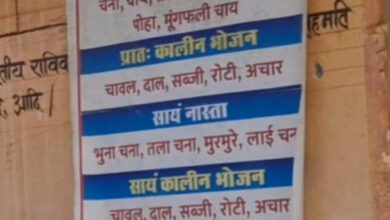 पोहा, मूंगफली चाय
प्रातः कालीन भोजन
चावल, दाल, सब्जी, रोटी, अचार
सायं नास्ता
भुना चना, तला चना, मुरमुरे, लाई चन
सायं कालीन भोजन
चावल, दाल, सब्जी, रोटी, अचार
तीय रावि
आदि